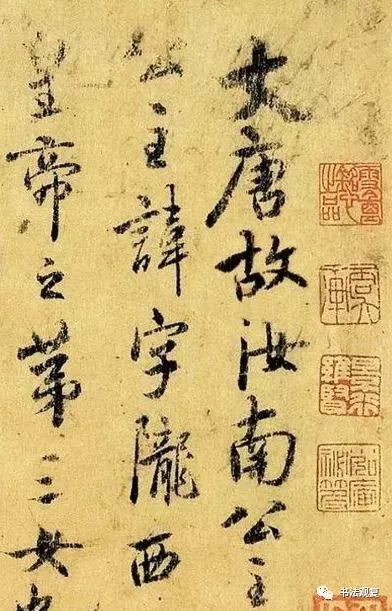 大唐故汝南公主
公主諱字隴西
皇帝之第三女
书法观复